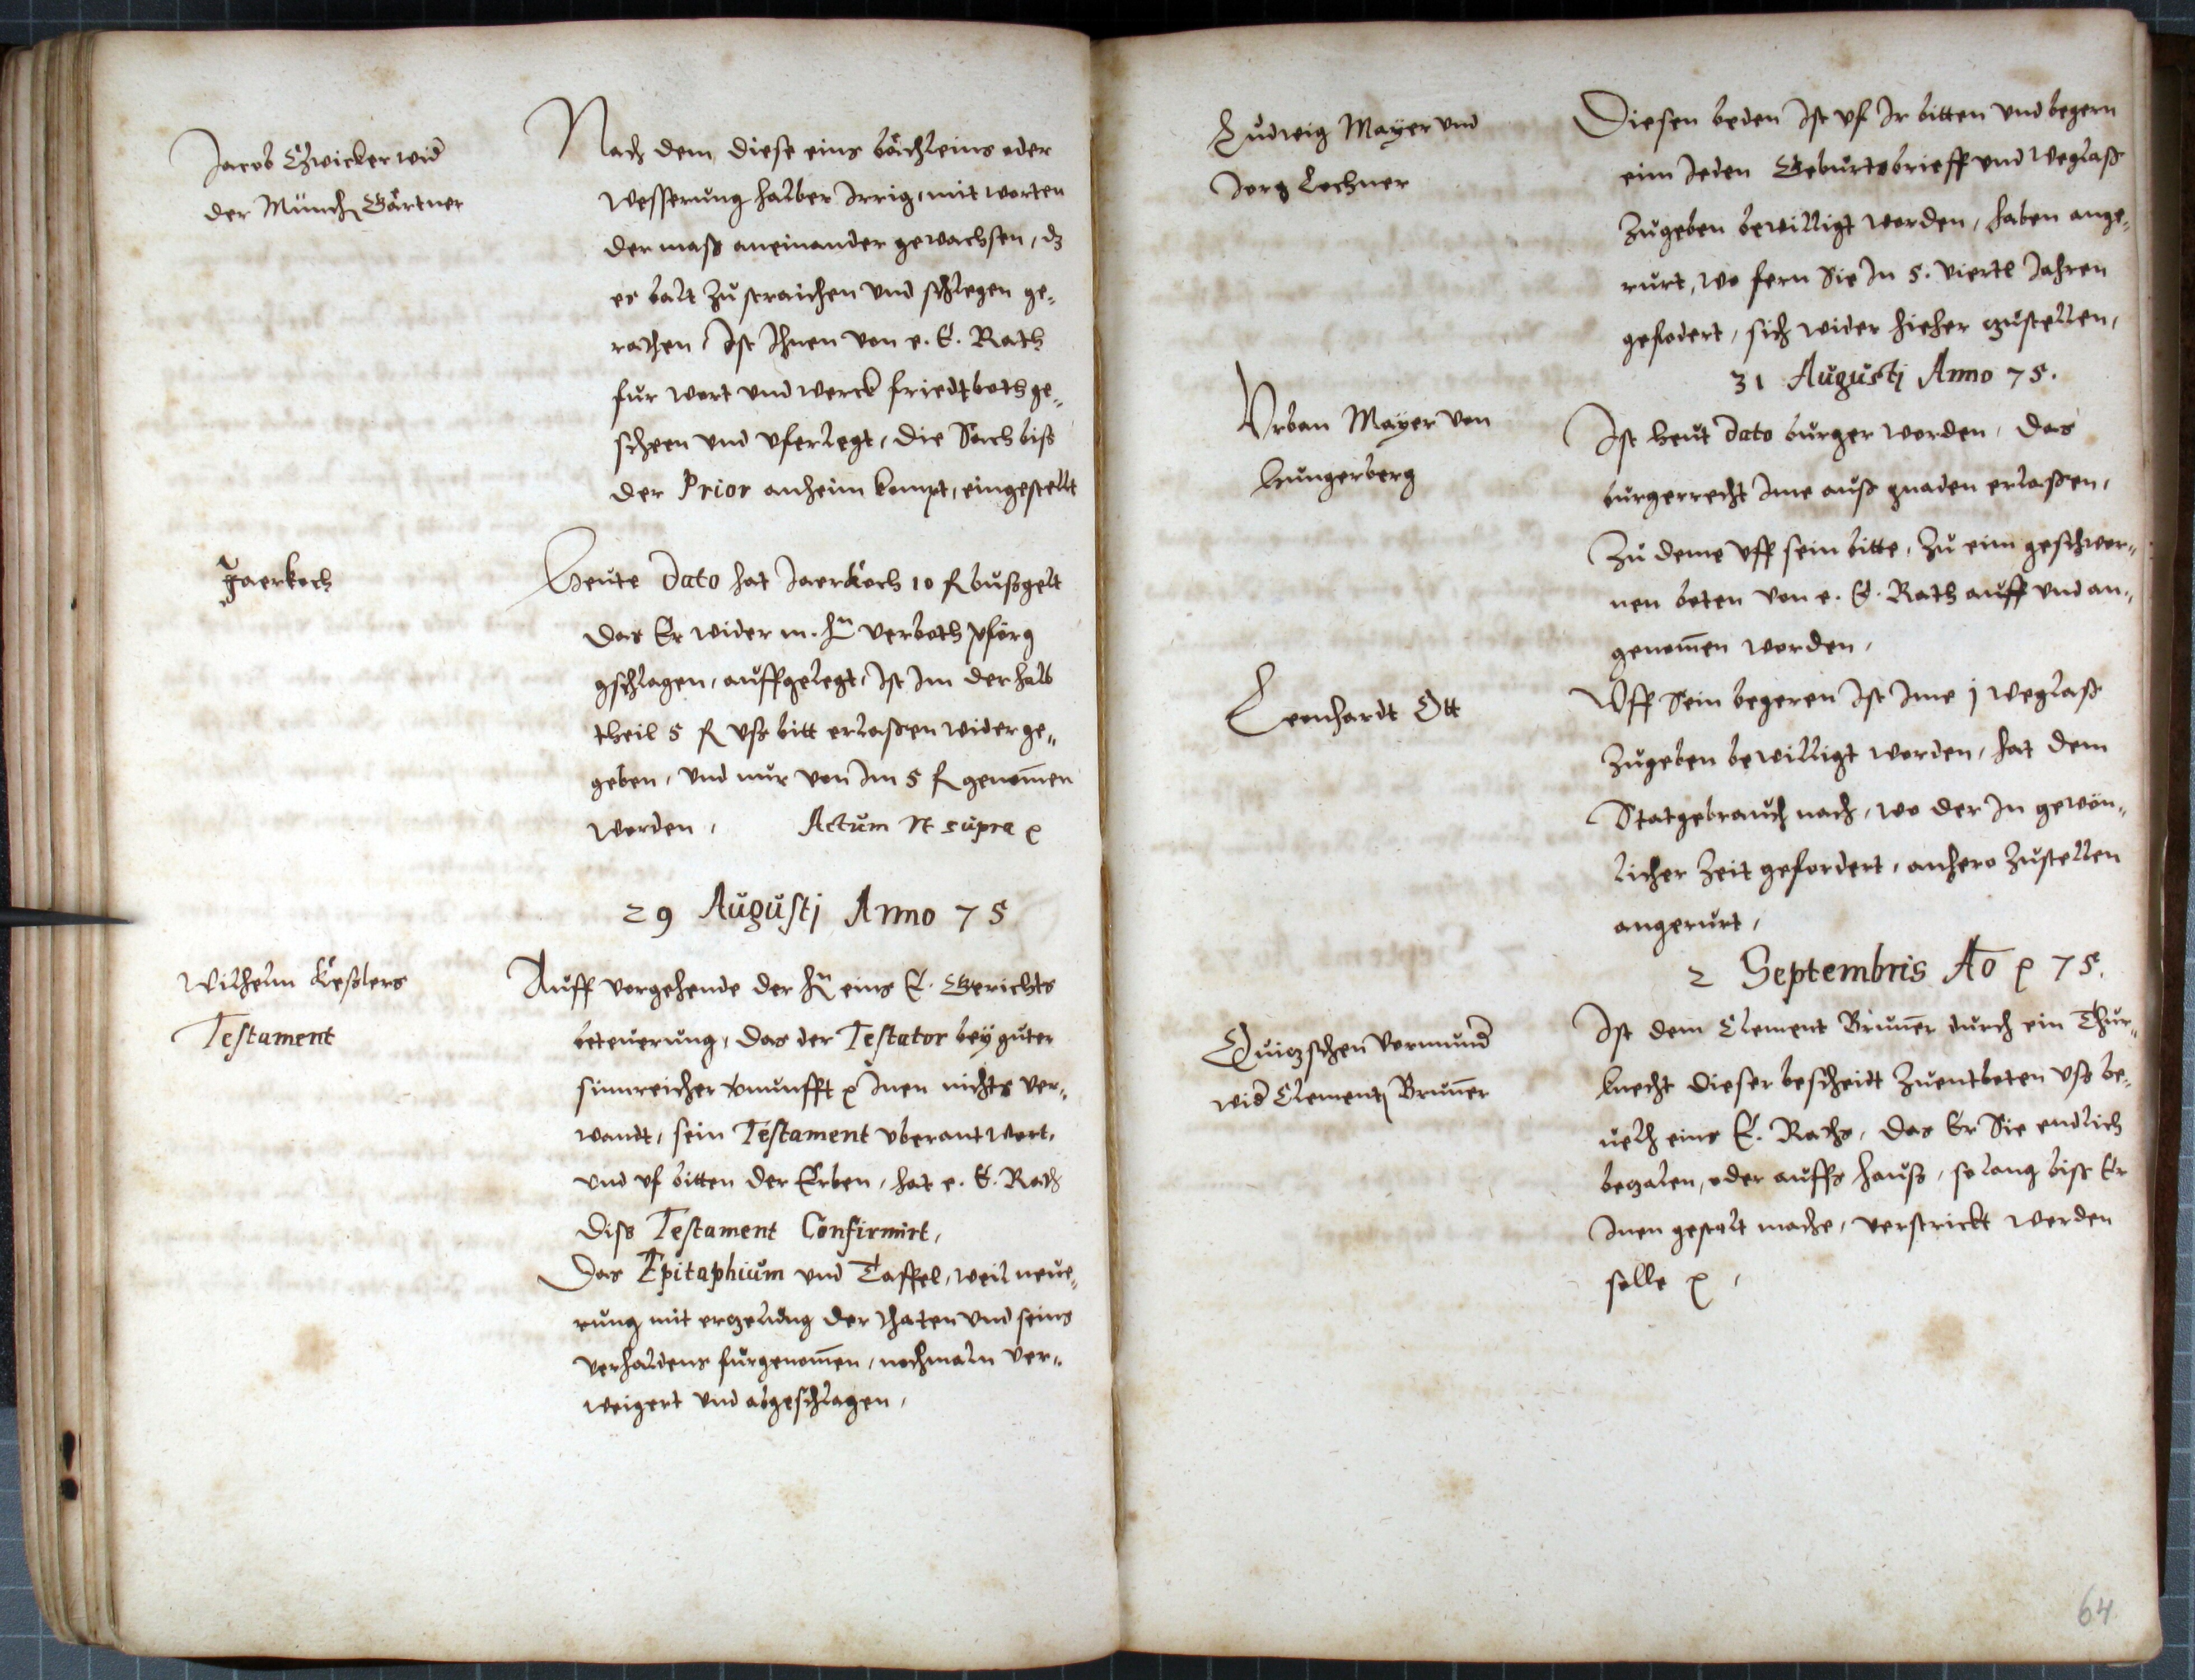 Jacob Zwicker wid
der Münch Gärtner
Nach dem diese eins bächleins oder
Wesserung halber Irrig, mit worten
der mass aneinander gewachsen, dz
es balt zu straichen und schlegen ge„
rathen, Ist Ihnen von e. E. Rath
fur wort und werck friedtboth ge„
scheen und uferlegt, die Sach biss
der Prior anheim kompt, eingestellt
Jaerkoch
Heute Dato hat Jaerkoch 10 fl bussgelt
das Er wider m. hn verboth
gschlagen, auffgelegt, Ist Im der halb
theil 5 fl uss bitt erlassen wider ge„
geben, und nur von Im 5 fl genom̄en
worden, Actum Vt supra
29 Augustj Anno 75
Wilhelm Kesslers
Testament
Auff vorgehende der hn eins E. Gerichts
beteuerung, das der Testator bey guter
sinnreicher vernunfft Inen nichts ver„
wandt, sein Testament uberantwort,
und uf bitten der Erben, hat e. E. Rath
diss Testament Confirmirt,
Das Epitaphium und Taffel, weil neue„
rung mit erzelung der thaten und seins
verhaldens furgenom̄en, nochmaln ver„
weigert und abgeschlagen,
Ludwig Mayer und
Jorg Lochner
Diesen beden Ist uf Ir bitten und begern
eim Jeden Geburtsbrieff und Weglass
zugeben bewilligt worden, haben ange„
rurt, wo fern Sie In 5. viertl Jahren
gefodert, sich wider hieher zustellen,
31 Augustj Anno 75.
Urban Mayer von
Hungerberg
Ist heut dato burger worden, das
burgerrecht Ime auss gnaden erlassen,
Zu deme uff sein bitte, zu eim geschwor„
nen boten von e. E. Rath auff und an„
genom̄en worden,
Leonhardt Ott
Uff Sein begeren Ist Ime j weglass
zugeben bewilligt worden, hat dem
Statgebrauch nach, wo der In gewön„
licher Zeit gefordert, anhero zustellen
angerurt,
2 Septembris Ao 75.
Quizschen Vormund
wid Clement Brun̄er
Ist dem Clement Brun̄er durch ein Thur„
knecht dieser bescheidt zuentbeten uss be„
uelh eins E. Raths, das Er Sie endlich
bezalen, oder auffs hauss, so lang biss Er
Inen gestalt mache, verstrickt werden
solle
64